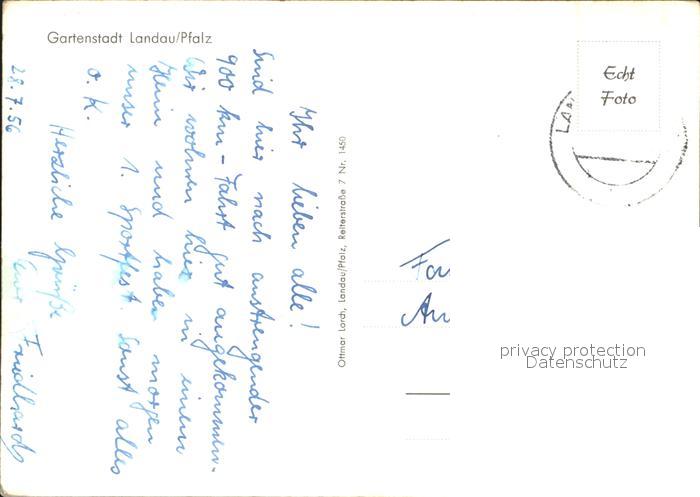 Gartenstadt Landau/Pfalz
28.7.56
Ihr lieben alle!
Sind hier nach anstrengender
900 km - Fahrt gut angekommen.
Wir wohnen hier in einem
Heim und haben morgen
unser 1. Sportfest. Sonst alles
o. K.
Herzliche Grüße
Euer Friedhards
Ottmar Lorch, Landau/Pfalz, Reiterstraße 7 Nr. 1450
Echt
Foto
LAN
Fa
An
privacy protection
Datenschutz